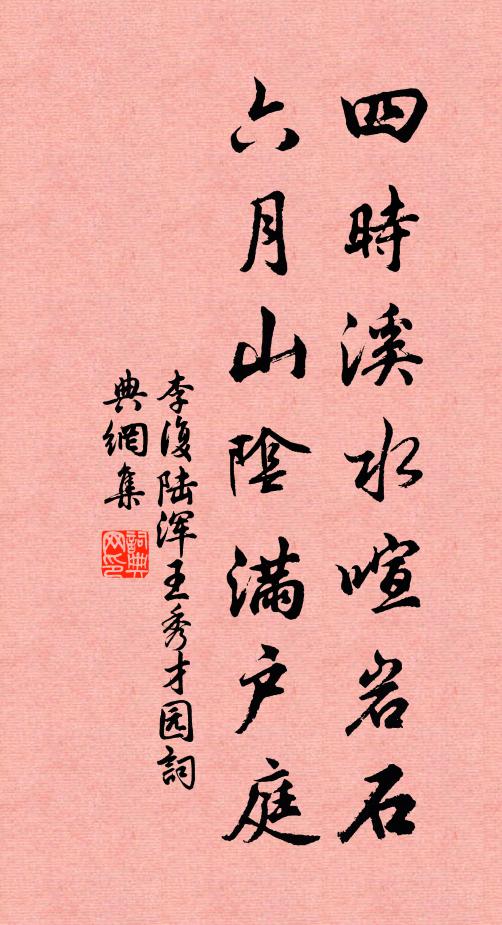 四時溪水喧岩石
六月山陰滿户庭
李復陆浑王秀才园詞
典網集
詞典网印